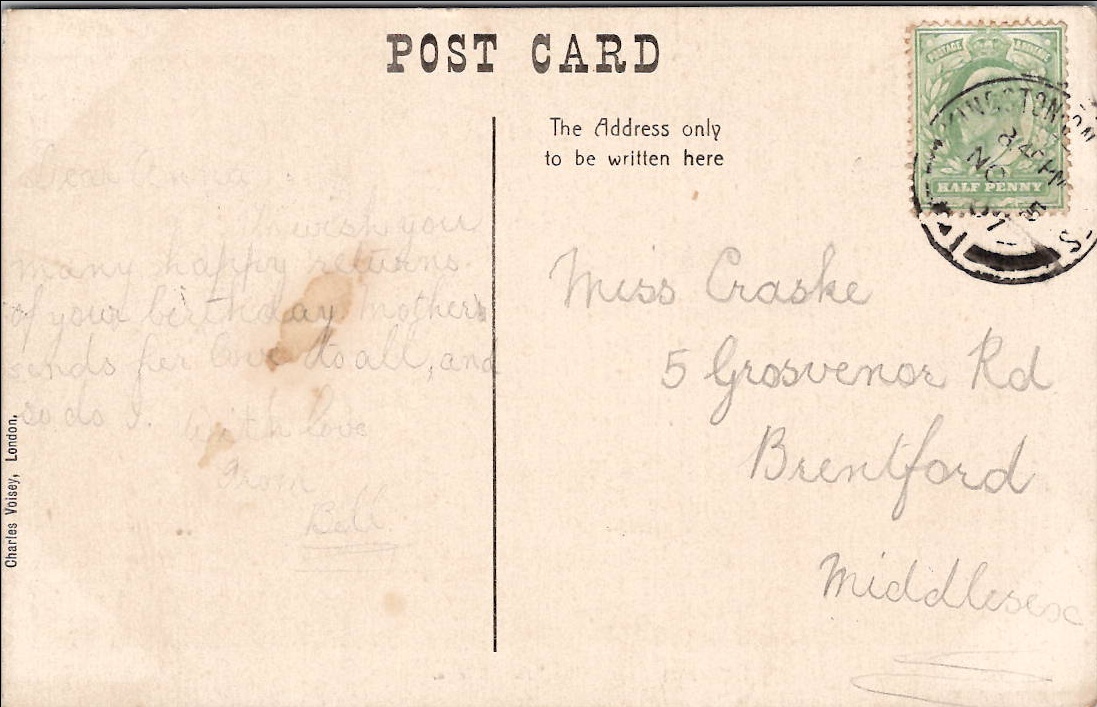 POST CARD
The Address only
to be written here
POSTAGE & REVENUE
HALF PENNY
KINGSTON ON
8.45 PM
NO 5
07
Dear Anna
I wish you
many happy returns
of your birthday Mother
sends her love to all, and
so do I. With love
from
Bell.
Miss Craske
5 Grosvenor Rd
Brentford
Middlesex
Charles Voisey, London.